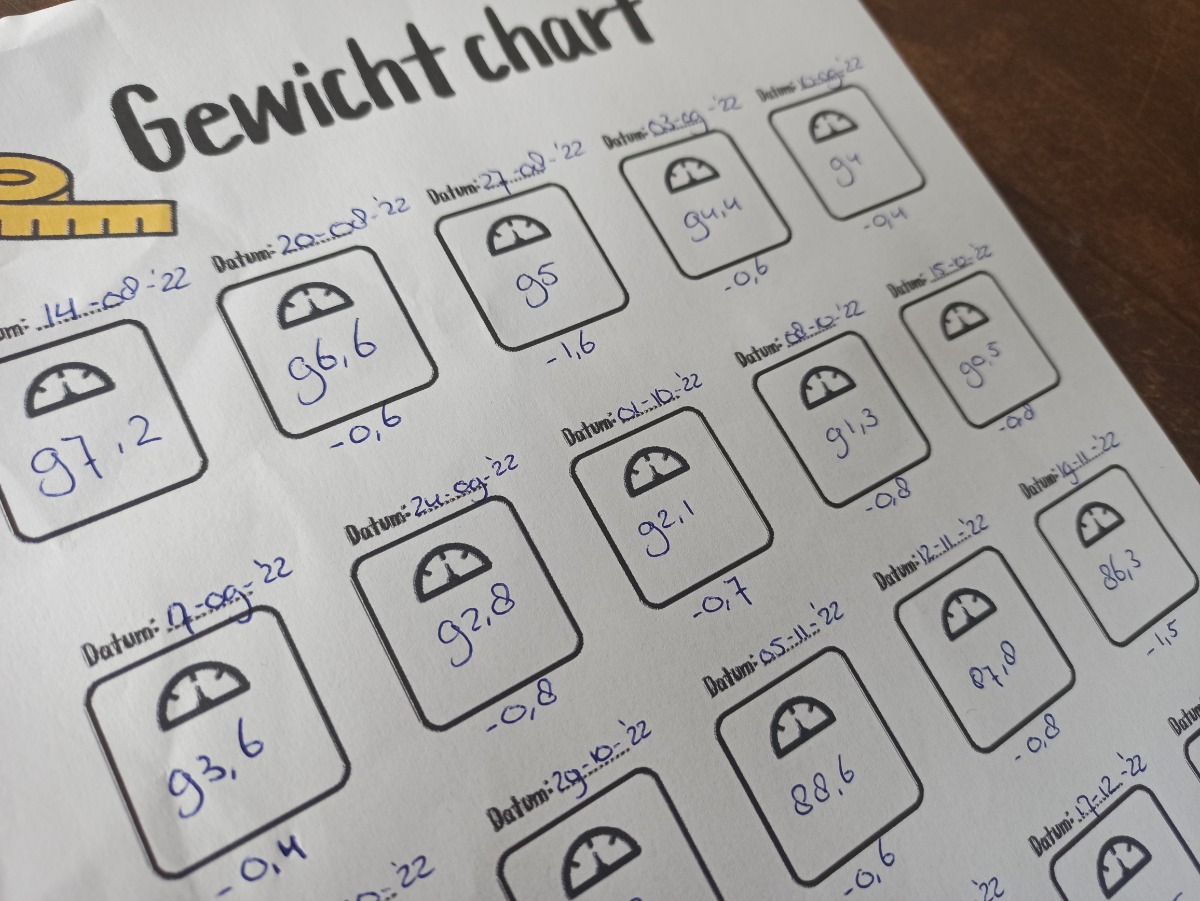 Gewicht chart
14-08-'22
97,2
Datum: 20-08-'22
96,6
-0,6
Datum: 27-08-'22
95
-1,6
Datum: 03-09-'22
94,4
-0,6
Datum: 10-09-'22
94
-0,4
Datum: 17-09-'22
93,6
-0,4
Datum: 24-09-'22
92,8
-0,8
Datum: 01-10-'22
92,1
-0,7
Datum: 08-10-'22
91,3
-0,8
Datum: 15-10-'22
90,5
-0,8
'22
Datum: 29-10-'22
Datum: 05-11-'22
88,6
-0,6
Datum: 12-11-'22
87,8
-0,8
Datum: 19-11-'22
86,3
-1,5
'22
Datum: 17-12-'22
Datum: